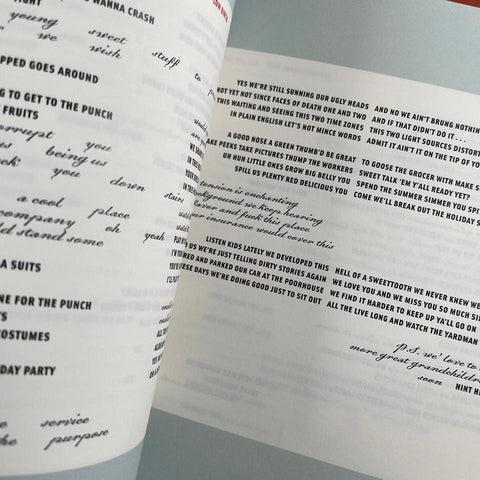 WANNA CRASH
young sweet stuff to
we wish
PPED GOES AROUND
NG TO GET TO THE PUNCH
FRUITS
corrupt you
es being us
ck you down stairs
a cool place
company oh yeah
ld stand some
A SUITS
NE FOR THE PUNCH
TS
COSTUMES
DAY PARTY
he service
the purpose
YES WE'RE STILL SUNNING OUR UGLY HEADS AND NO WE AIN'T BRUNG NOTHIN
NOT YET NOT SINCE FACES OF DEATH ONE AND TWO AND IF THAT DIDN'T DO IT . . .
THIS WAITING AND SEEING THIS TWO TIME ZONES THIS TWO LIGHT SOURCES DISTORT
IN PLAIN ENGLISH LET'S NOT MINCE WORDS ADMIT IT AIN'T IT ON THE TIP OF YO
A GOOD NOSE A GREEN THUMB'D BE GREAT TO GOOSE THE GROCER WITH MAKE S
AKE PEEKS TAKE PICTURES THUMP THE WORKERS SWEET TALK 'EM Y'ALL READY YET?
UH NUH LITTLE ONES GROW BIG BELLY YOU SPEND THE SUMMER SIMMER YOU SPI
SPILL US PLENTY RED DELICIOUS YOU COME WE'LL BREAK OUT THE HOLIDAY S
tension is enchanting
background we keep hearing
favor and fuck this place
our insurance would cover this
LISTEN KIDS LATELY WE DEVELOPED THIS HELL OF A SWEETTOOTH WE NEVER KNEW WE
US WE'RE JUST TELLING DIRTY STORIES AGAIN WE LOVE YOU AND WE MISS YOU SO MUCH SI
TIRED AND PARKED OUR CAR AT THE POORHOUSE WE FIND IT HARDER TO KEEP UP YA'LL GO ON
THESE DAYS WE'RE DOING GOOD JUST TO SIT OUT ALL THE LIVE LONG AND WATCH THE YARDMAN
P.S. we'd love to
more great grandchildre
soon HINT H